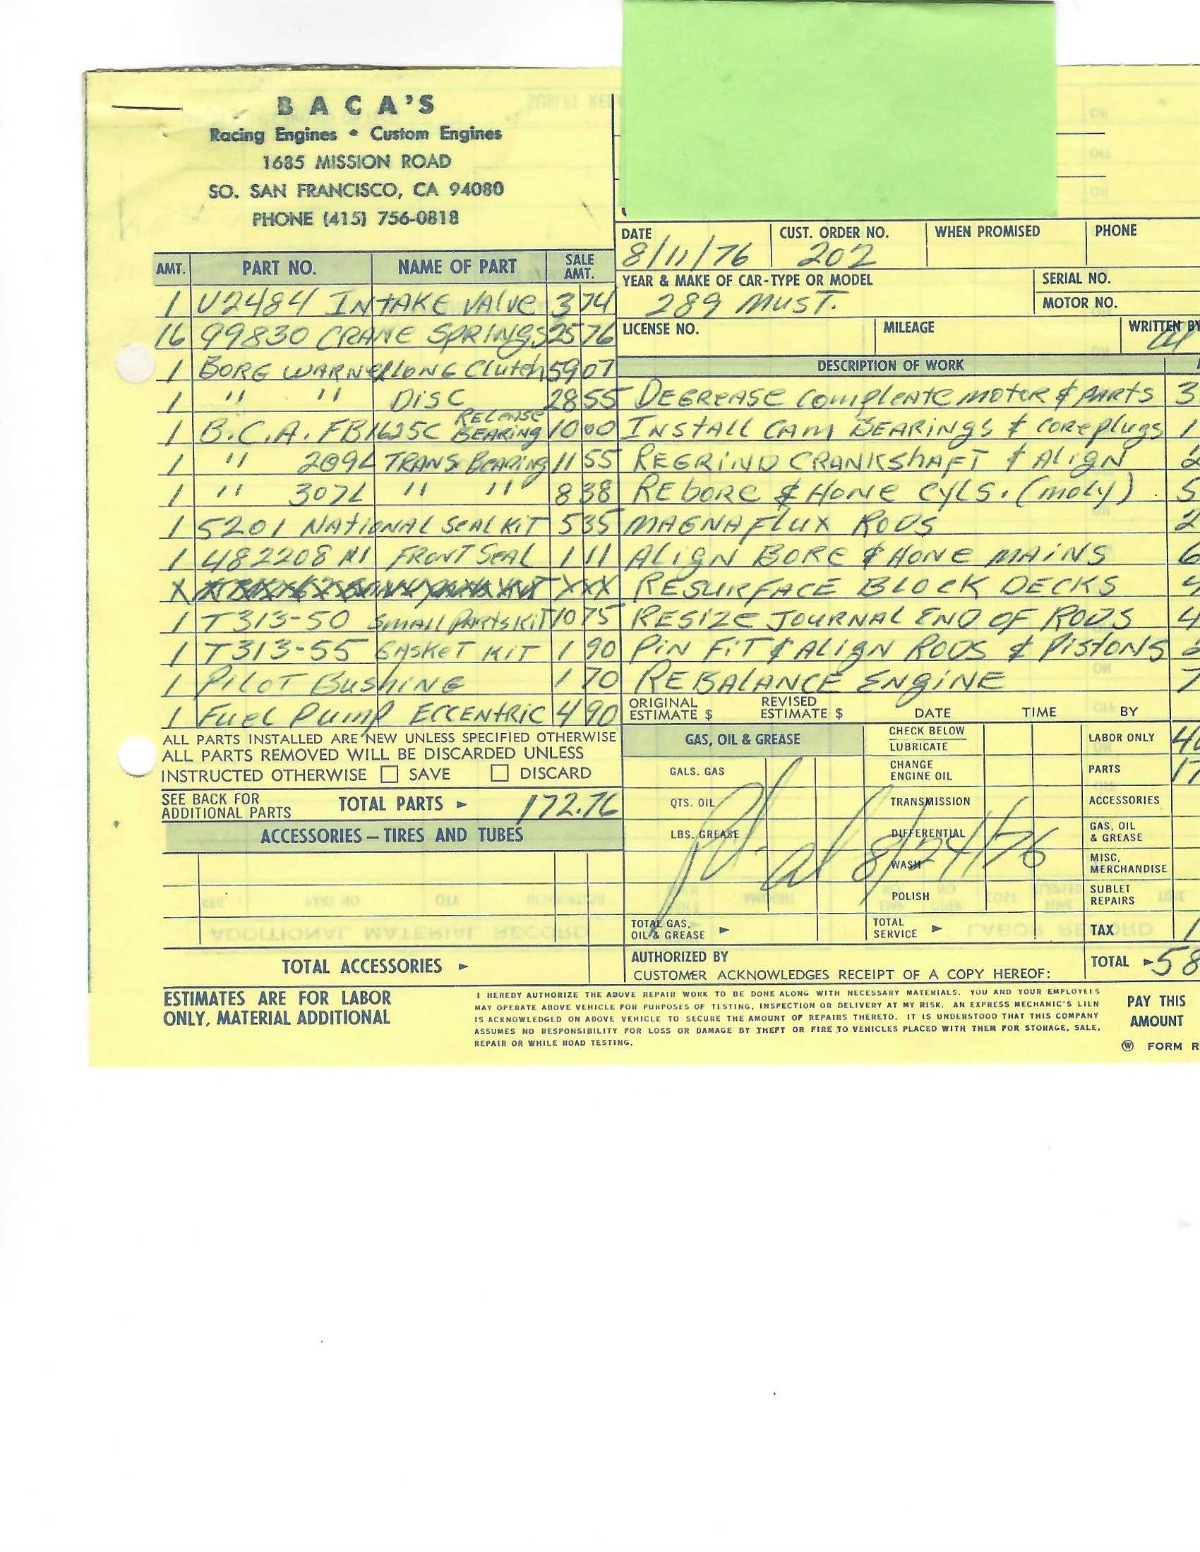 BACA'S
Racing Engines • Custom Engines
1685 MISSION ROAD
SO. SAN FRANCISCO, CA 94080
PHONE (415) 756-0818
DATE 8/11/76 CUST. ORDER NO. 202 WHEN PROMISED PHONE
YEAR & MAKE OF CAR-TYPE OR MODEL 289 MUST. SERIAL NO.
MOTOR NO.
LICENSE NO. MILEAGE WRITTEN BY
AMT. PART NO. NAME OF PART SALE AMT.
1 V2484 INTAKE VALVE 3 74
16 99830 CRANE SPRINGS 25 76
1 BORG WARNER LONG Clutch 59 07
1 " " DISC 28 55
1 B.C.A. FB1625C RELEASE BEARING 10 00
1 " 209L TRANS BEARING 11 55
1 " 307L " " 8 38
1 5201 NATIONAL SEAL KIT 5 35
1 482208 N1 FRONT SEAL 1 11
X XXX
1 T313-50 SMALL PARTS KIT 10 75
1 T313-55 GASKET KIT 1 90
1 PILOT BUSHING 1 70
1 FUEL PUMP ECCENTRIC 4 90
DESCRIPTION OF WORK
DEGREASE COMPLEATE MOTOR & PARTS 3
INSTALL CAM BEARINGS & COREPLUGS 1
REGRIND CRANKSHAFT & ALIGN 2
REBORE & HONE CYLS. (MOLY) 5
MAGNAFLUX RODS 2
ALIGN BORE & HONE MAINS 6
RESURFACE BLOCK DECKS 4
RESIZE JOURNAL END OF RODS 4
PIN FIT & ALIGN RODS & PISTONS 2
REBALANCE ENGINE 7
ORIGINAL ESTIMATE $ REVISED ESTIMATE $ DATE TIME BY
ALL PARTS INSTALLED ARE NEW UNLESS SPECIFIED OTHERWISE
ALL PARTS REMOVED WILL BE DISCARDED UNLESS
INSTRUCTED OTHERWISE SAVE DISCARD
SEE BACK FOR ADDITIONAL PARTS TOTAL PARTS 172.76
ACCESSORIES – TIRES AND TUBES
TOTAL ACCESSORIES
GAS, OIL & GREASE
GALS. GAS
QTS. OIL
LBS. GREASE
TOTAL GAS, OIL & GREASE
CHECK BELOW
LUBRICATE
CHANGE ENGINE OIL
TRANSMISSION
DIFFERENTIAL
WASH
POLISH
TOTAL SERVICE
8/24/76
LABOR ONLY
PARTS 17
ACCESSORIES
GAS, OIL & GREASE
MISC, MERCHANDISE
SUBLET REPAIRS
TAX 1
TOTAL 58
AUTHORIZED BY
CUSTOMER ACKNOWLEDGES RECEIPT OF A COPY HEREOF:
ESTIMATES ARE FOR LABOR
ONLY, MATERIAL ADDITIONAL
I HEREBY AUTHORIZE THE ABOVE REPAIR WORK TO BE DONE ALONG WITH NECESSARY MATERIALS. YOU AND YOUR EMPLOYEES
MAY OPERATE ABOVE VEHICLE FOR PURPOSES OF TESTING, INSPECTION OR DELIVERY AT MY RISK. AN EXPRESS MECHANIC'S LIEN
IS ACKNOWLEDGED ON ABOVE VEHICLE TO SECURE THE AMOUNT OF REPAIRS THERETO. IT IS UNDERSTOOD THAT THIS COMPANY
ASSUMES NO RESPONSIBILITY FOR LOSS OR DAMAGE BY THEFT OR FIRE TO VEHICLES PLACED WITH THEM FOR STORAGE, SALE,
REPAIR OR WHILE ROAD TESTING.
PAY THIS
AMOUNT
FORM R